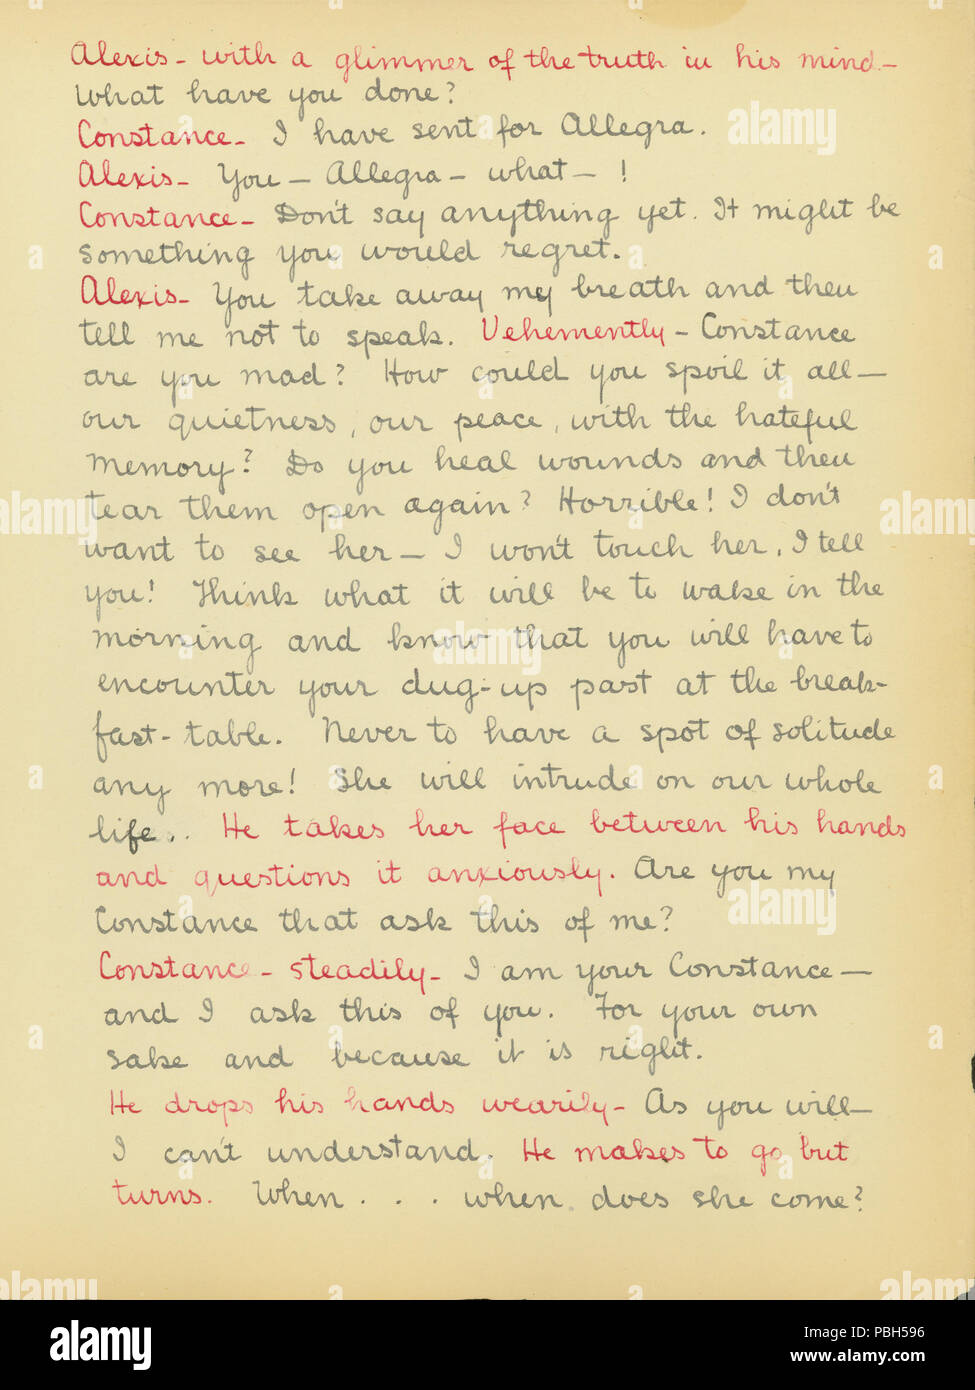 Alexis - with a glimmer of the truth in his mind -
What have you done?
Constance - I have sent for Allegra.
Alexis - You - Allegra - what - !
Constance - Don't say anything yet. It might be
something you would regret.
Alexis - You take away my breath and then
tell me not to speak. Vehemently - Constance
are you mad? How could you spoil it all -
our quietness, our peace, with the hateful
memory? Do you heal wounds and then
tear them open again? Horrible! I don't
want to see her - I won't touch her, I tell
you! Think what it will be to wake in the
morning and know that you will have to
encounter your dug-up past at the break-
fast-table. Never to have a spot of solitude
any more! She will intrude on our whole
life.. He takes her face between his hands
and questions it anxiously. Are you my
Constance that ask this of me?
Constance - steadily - I am your Constance -
and I ask this of you. For your own
sake and because it is right.
He drops his hands wearily - As you will -
I can't understand. He makes to go but
turns. When . . . when does she come?
alamy
Image ID: PBH596
www.alamy.com